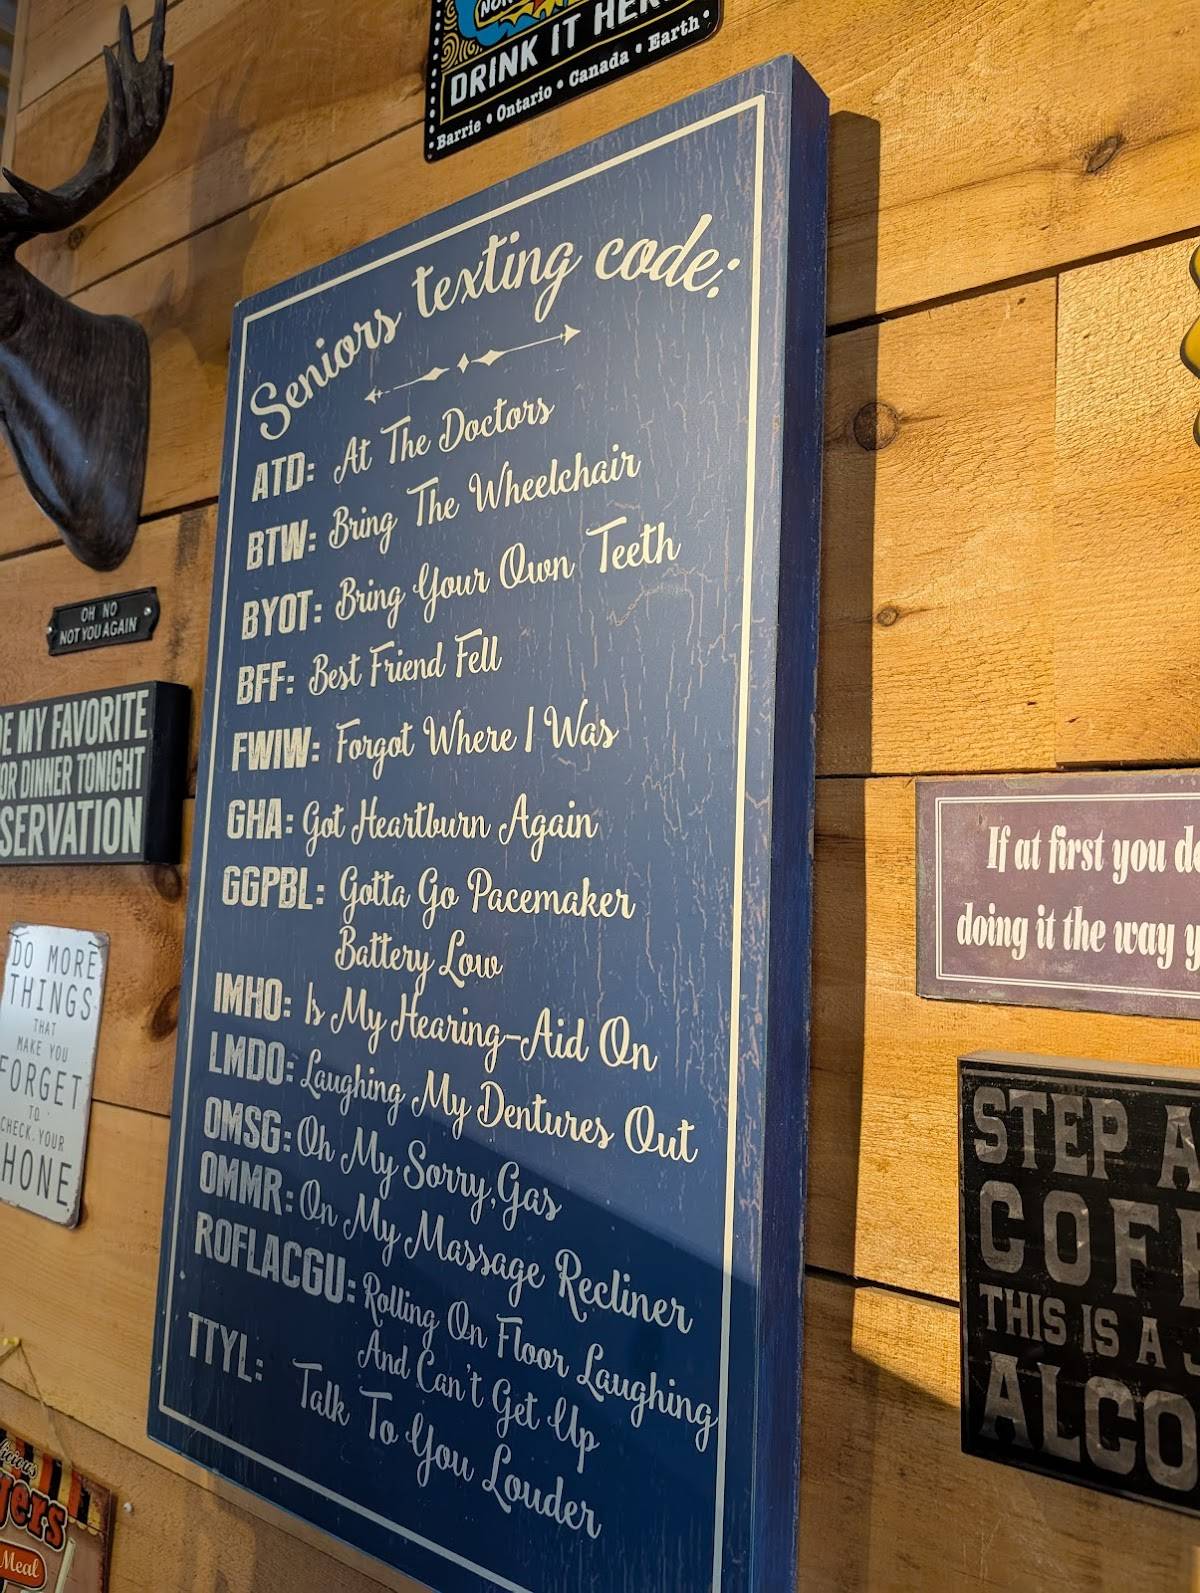 DRINK IT HERE
Barrie • Ontario • Canada • Earth •
Seniors texting code:
ATD: At The Doctors
BTW: Bring The Wheelchair
BYOT: Bring Your Own Teeth
BFF: Best Friend Fell
FWIW: Forgot Where I Was
GHA: Got Heartburn Again
GGPBL: Gotta Go Pacemaker
Battery Low
IMHO: Is My Hearing-Aid On
LMDO: Laughing My Dentures Out
OMSG: Oh My Sorry, Gas
OMMR: On My Massage Recliner
ROFLACGU: Rolling On Floor Laughing
And Can't Get Up
TTYL: Talk To You Louder
OH NO
NOT YOU AGAIN
MY FAVORITE
DINNER TONIGHT
DO MORE
THINGS
THAT
MAKE YOU
FORGET
TO
CHECK YOUR
If at first you
doing it the way
STEP
THIS IS A
Meal